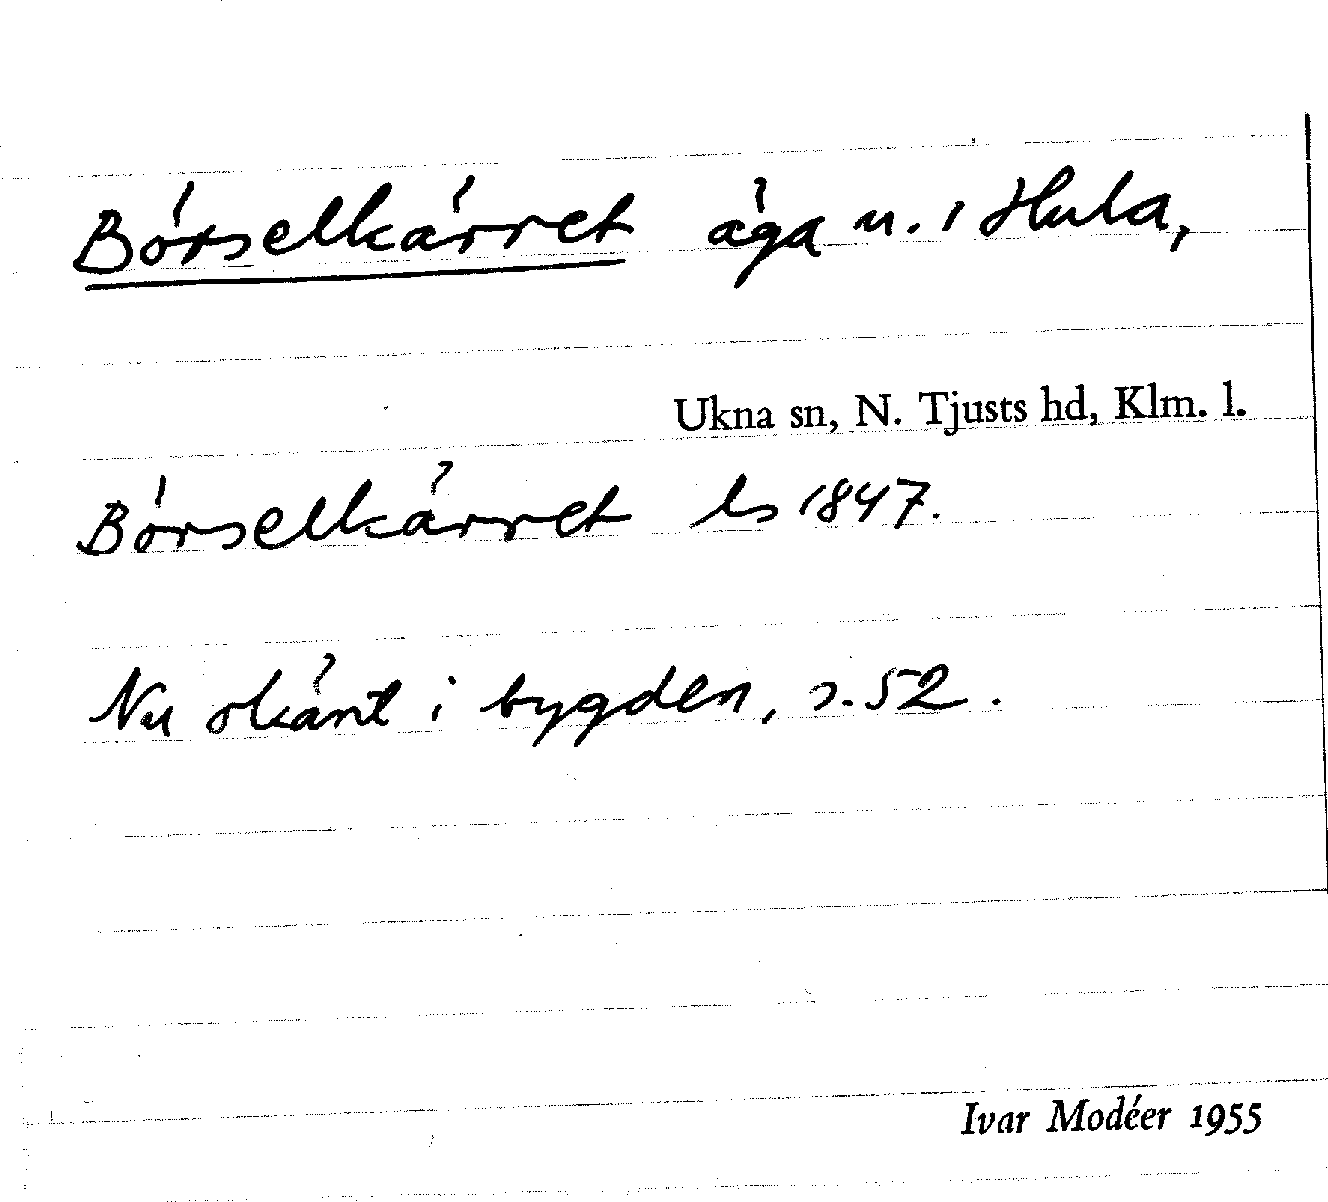 Börselkärret äga u. i Hula,
Ukna sn, N. Tjusts hd, Klm. l.
Börselkärret ls 1847.
Nu okänt i bygden, s. 52.
Ivar Modéer 1955